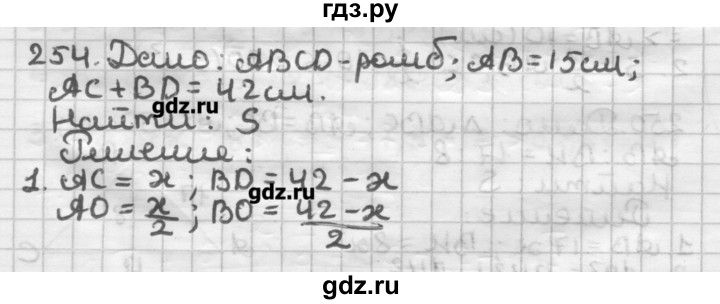 гдз.ру
254. Дано: ABCD-ромб; AB=15см;
AC+BD=42см.
gdz.ru
Найти: S
Решение:
1. AC = x; BD = 42 - x
gdz.ru
AO = x/2; BO = (42-x)/2
gdz.ru